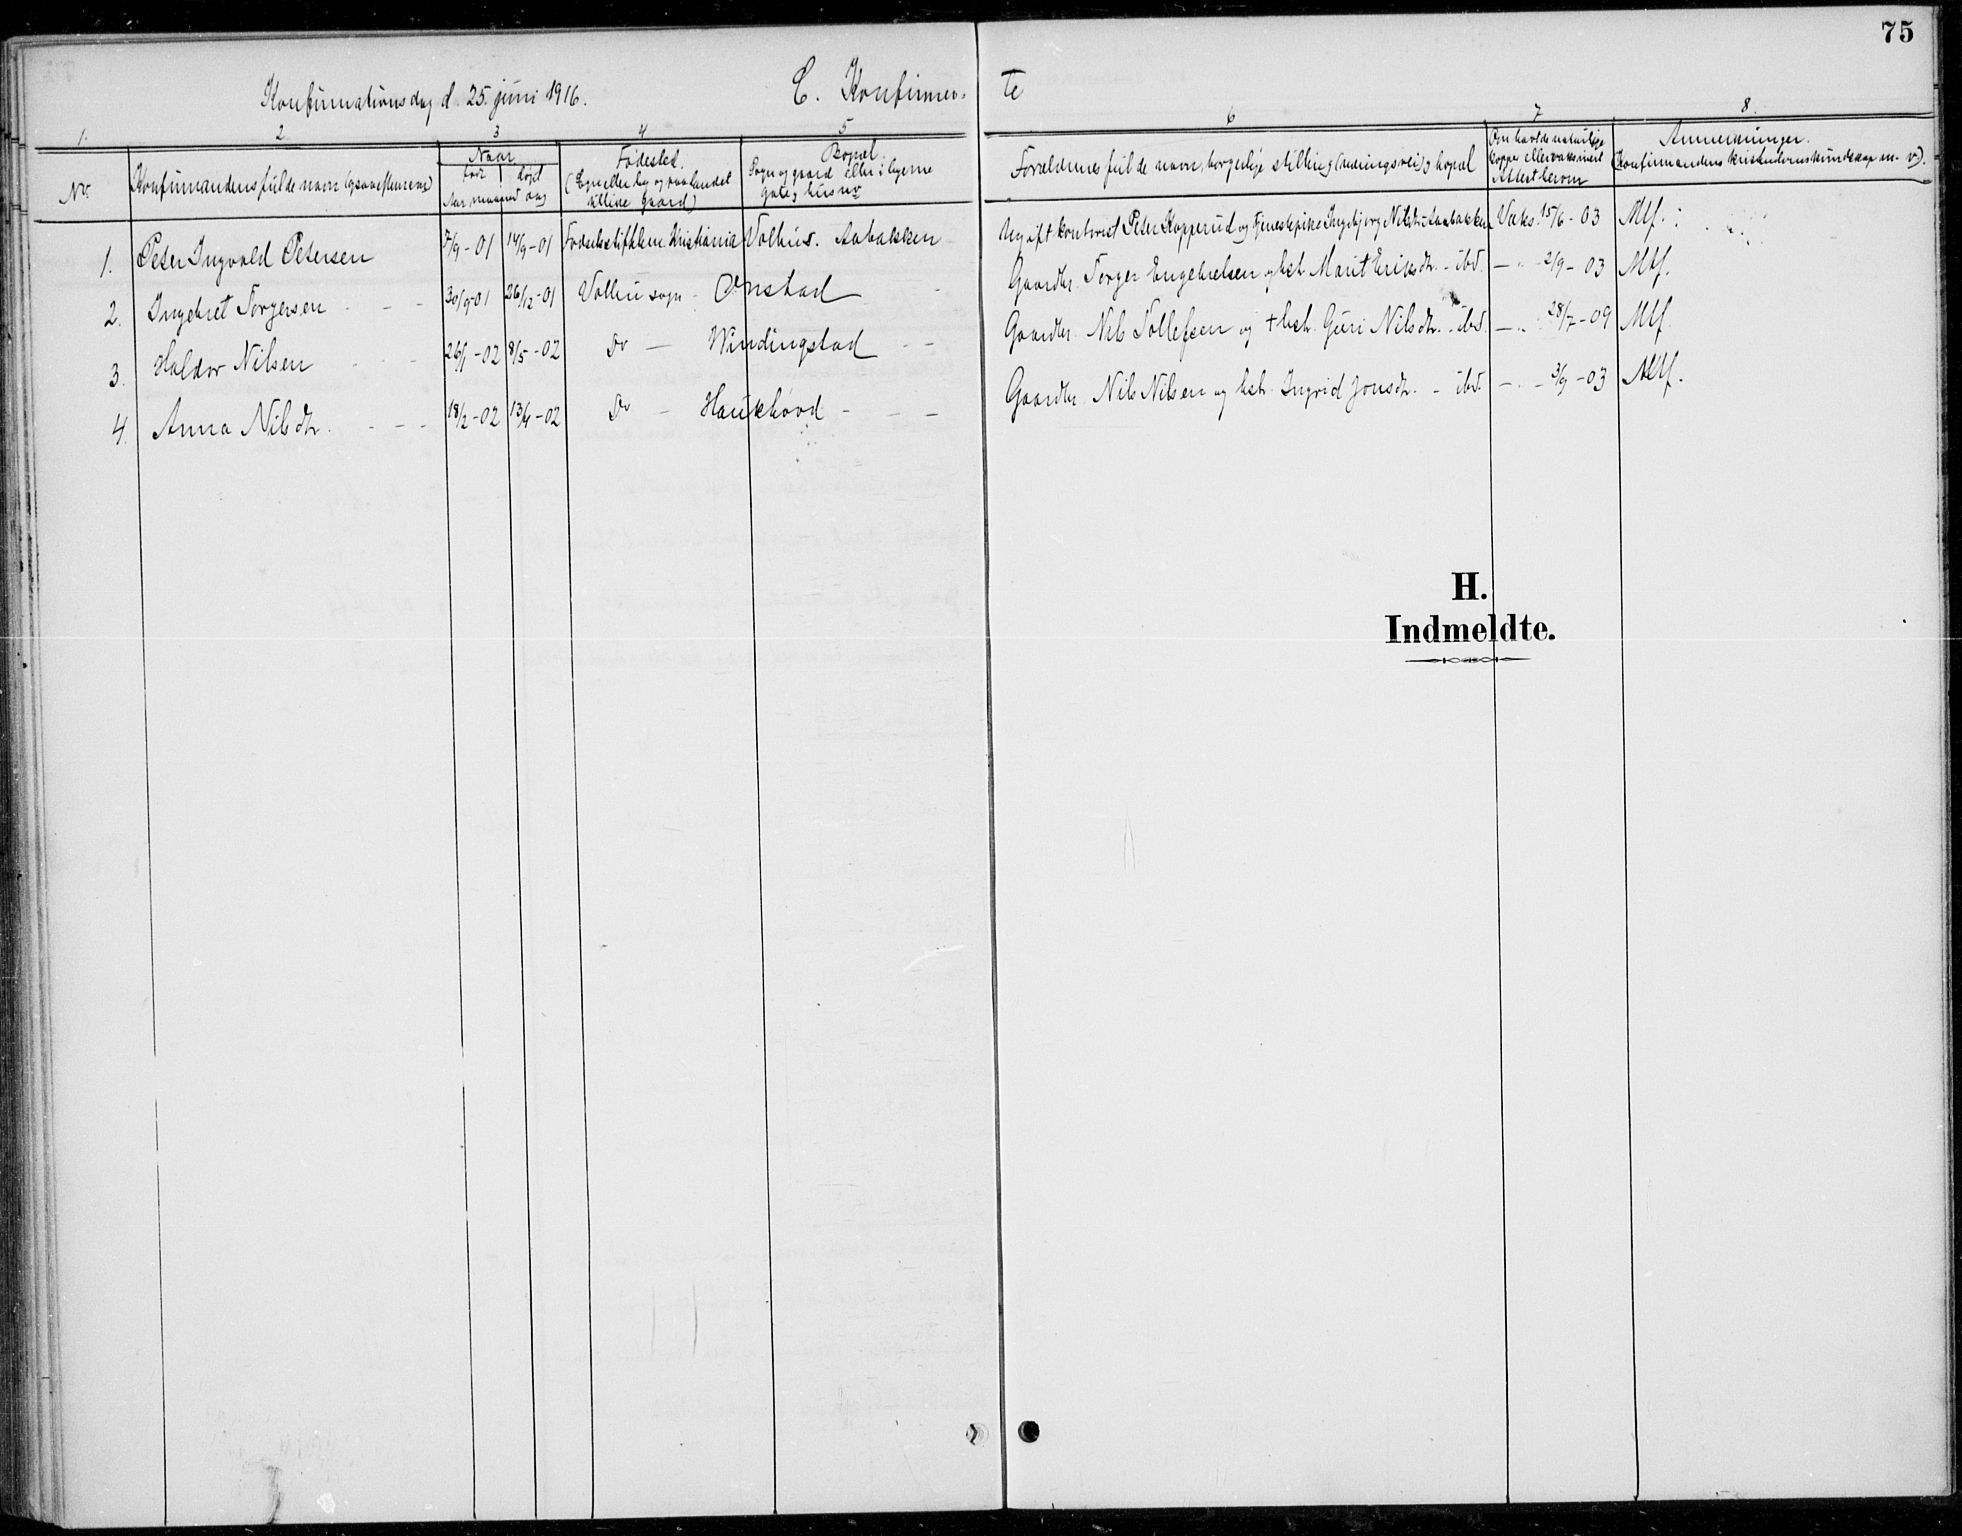 75
Konfirmationsdag d. 25. juni 1916.
C. Konfirmer-
te
1. 2 3 4 5 6 7 8.
Nr.
Konfirmandens fulde navn
Naar
født døpt
Aar maaned dag
Fødested.
(By eller by og paa landet
tillike gaard)
Bopæl
Sogn og gaard eller i byerne
gate og husnr
Forældrenes fulde navn, borgerlige stilling (næringsvei) og bopæl
Om havt de naturlige
kopper eller vaksineret
Attest herom
Anmerkninger.
(Konfirmandens kristendomskundskap m. v.).
1. Peter Ingvald Petersen 7/9-01 14/9-01 Fødselsstiftelsen Kristiania Volbu s. Aabakken Ugift kontorist Peter Kopperud og tjenestepike Ingebjørg Nilsdtr Aabakken Vaks. 15/6-03 Mtf.
2. Ingebret Torgersen 30/9-01 26/12-01 Volbu sogn Ønstad Gaardbr. Torger Engebretsen og hst. Marit Eriksdtr. - ibd. — " - 2/9-03 Mtf.
3. Haldor Nilsen 26/1-02 8/5-02 Do — Windingstad Gaardbr. Nils Tollefsen og + hst. Guri Nilsdtr. - ibd. — " 28/7-09 Mtf
4. Anna Nilsdtr. 18/2-02 13/4-02 Do — Haukhövd Gaardbr. Nils Nilsen og hst. Ingrid Jonsdtr. - ibd. — " - 3/9-03 Mtf.
H.
Indmeldte.